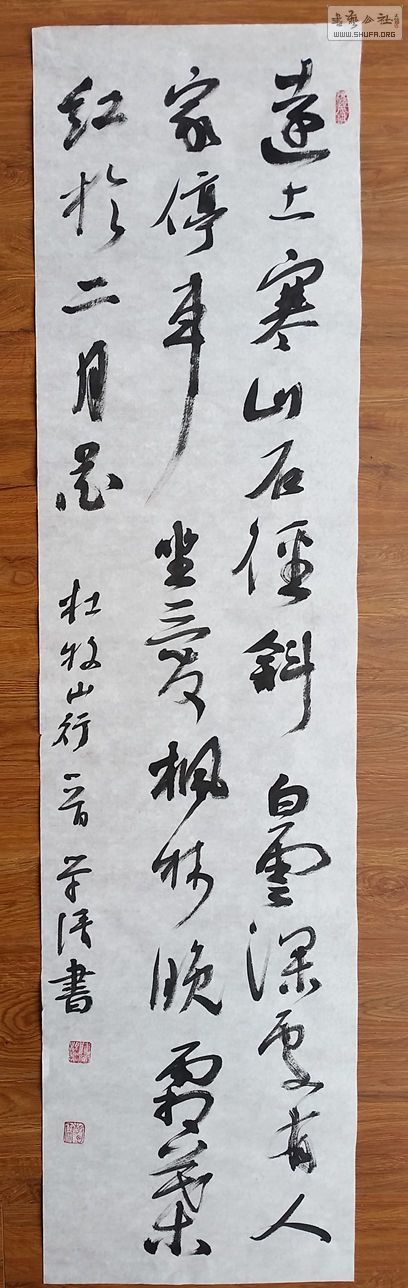 遠上寒山石徑斜白雲深處有人
家停車坐愛楓林晚霜葉
紅於二月花
杜牧山行一首
書
書藝公社
WWW.SHUFA.ORG